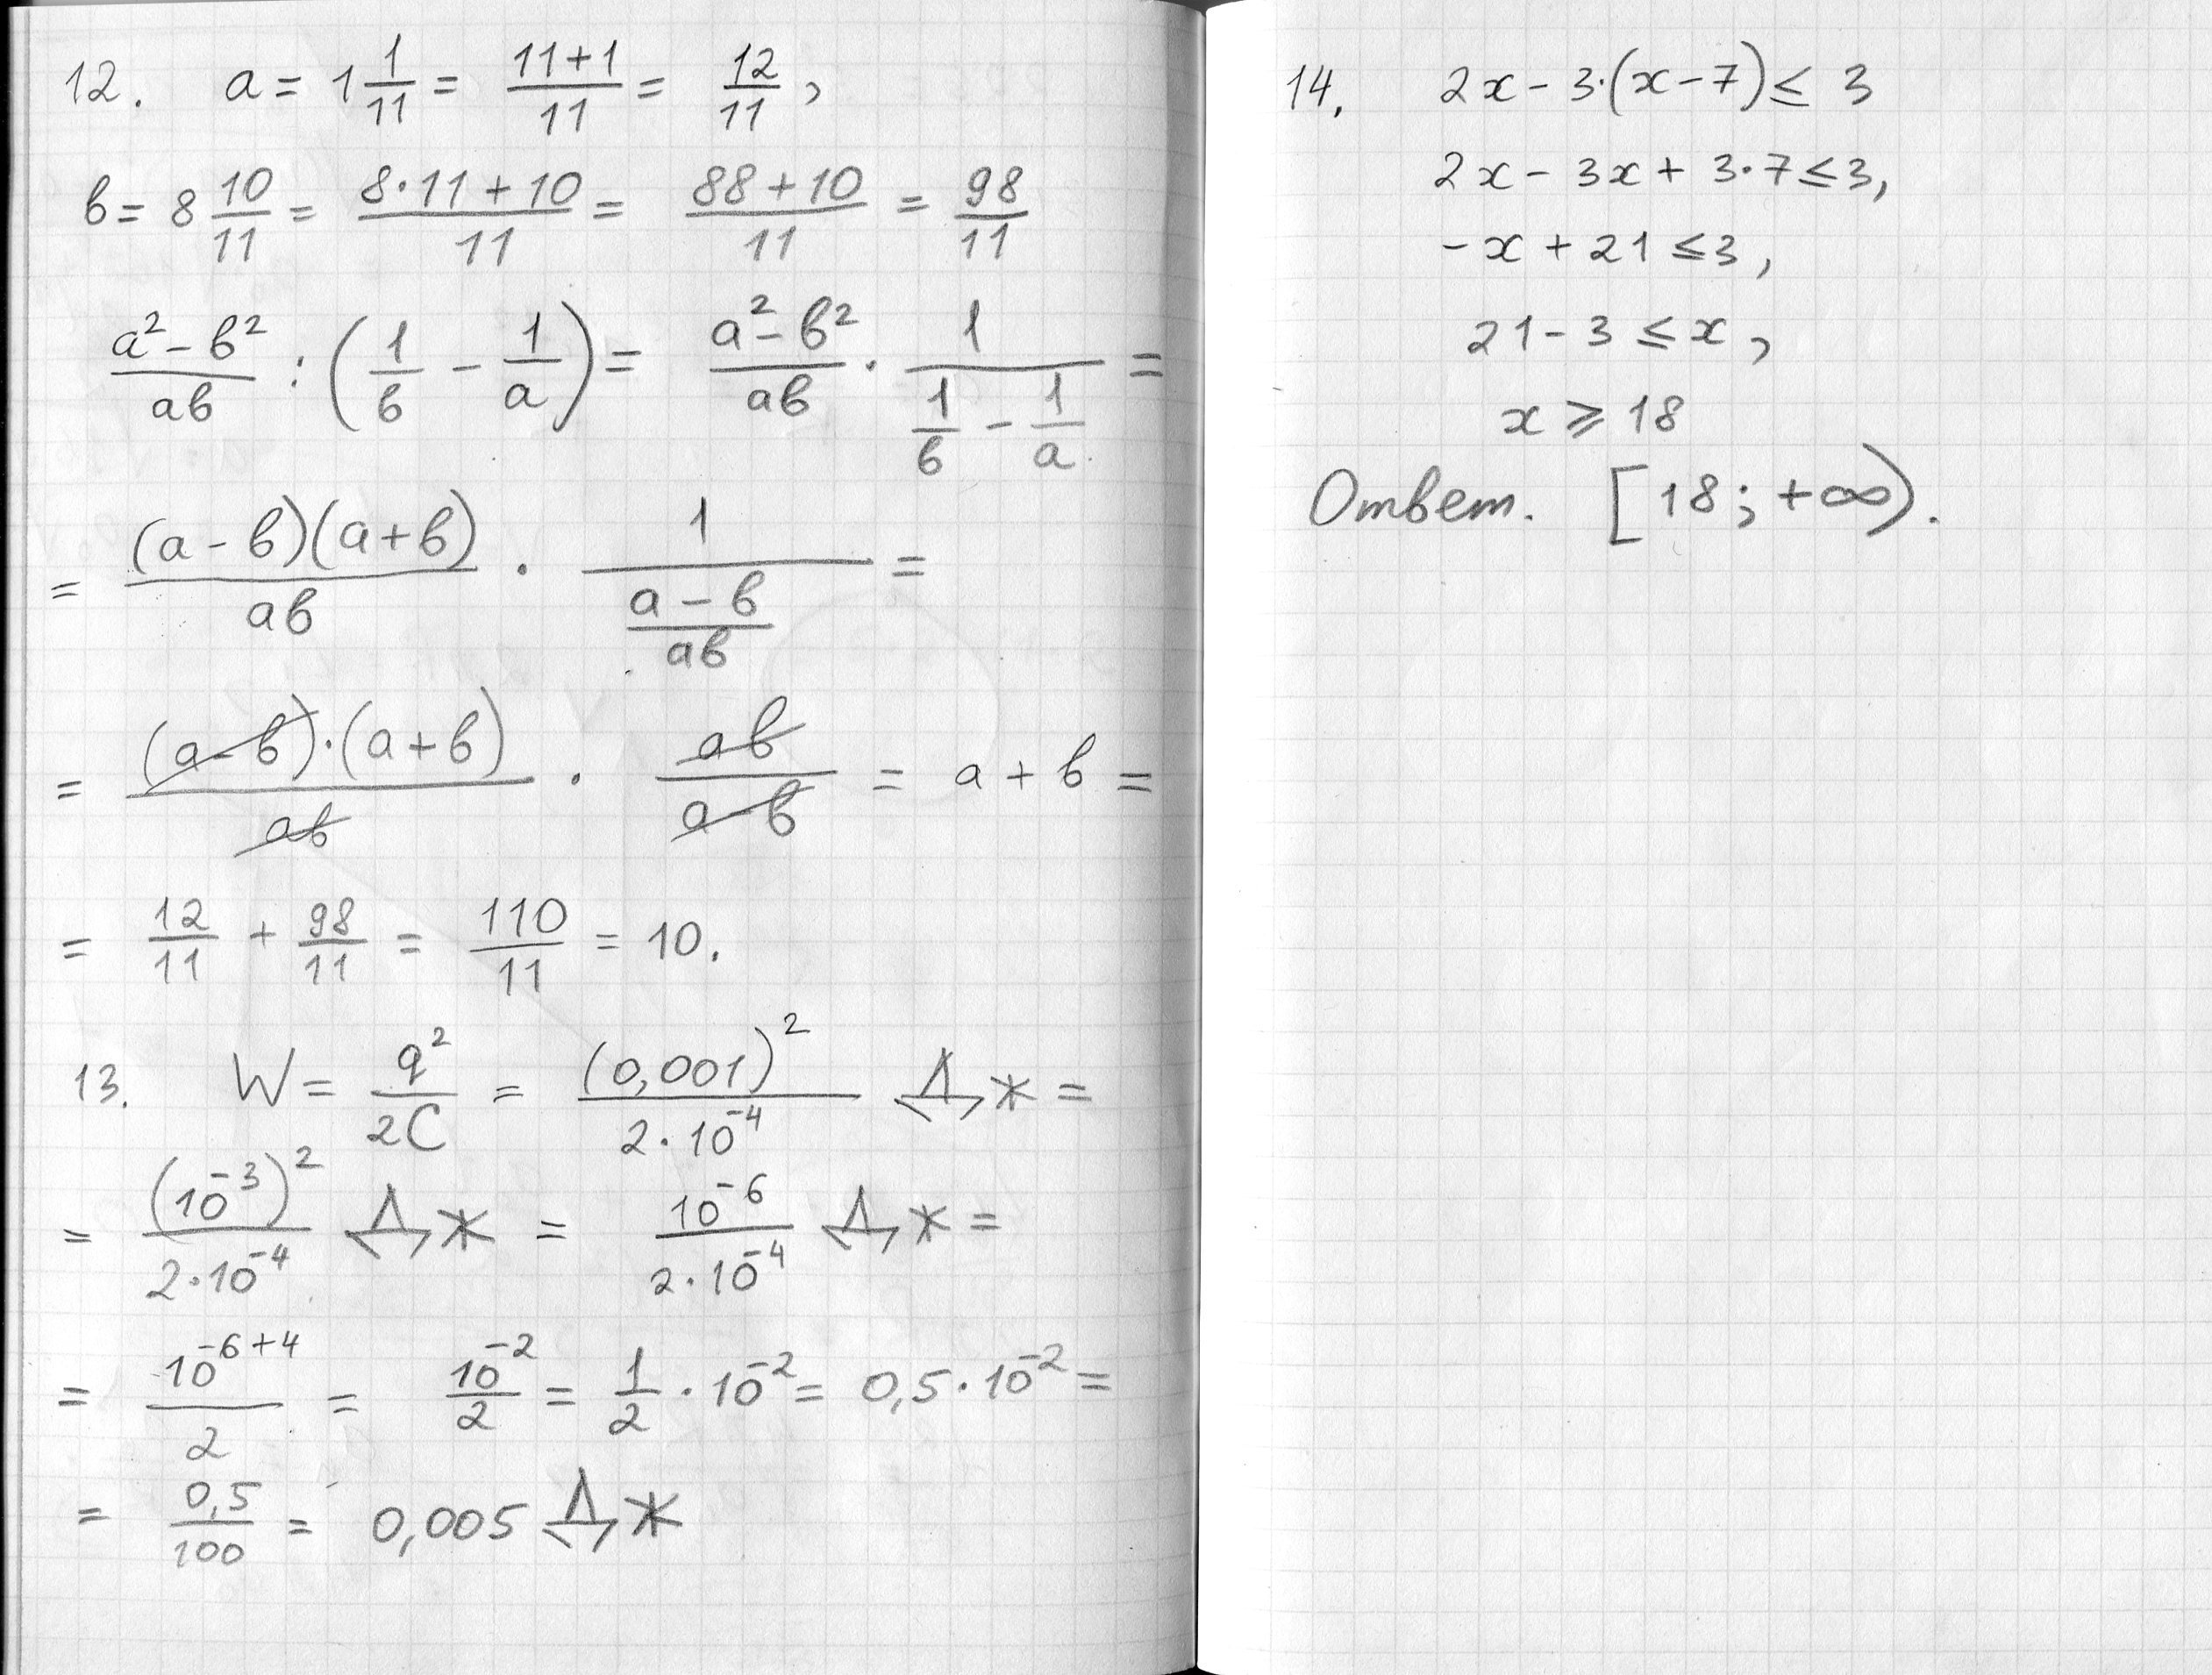 12. a = 1 1/11 = (11+1)/11 = 12/11,
b = 8 10/11 = (8·11+10)/11 = (88+10)/11 = 98/11
(a²-b²)/(ab) : (1/b - 1/a) = (a²-b²)/(ab) · 1/(1/b - 1/a) =
= ((a-b)(a+b))/(ab) · 1/((a-b)/(ab)) =
= ((a-b)·(a+b))/(ab) · (ab)/(a-b) = a+b =
= 12/11 + 98/11 = 110/11 = 10.
13. W = q²/(2C) = (0,001)²/(2·10⁻⁴) Дж =
= (10⁻³)²/(2·10⁻⁴) Дж = 10⁻⁶/(2·10⁻⁴) Дж =
= 10⁻⁶⁺⁴/2 = 10⁻²/2 = 1/2 · 10⁻² = 0,5·10⁻² =
= 0,5/100 = 0,005 Дж
14. 2x - 3·(x-7) ≤ 3
2x - 3x + 3·7 ≤ 3,
-x + 21 ≤ 3,
21 - 3 ≤ x,
x ⩾ 18
Ответ. [18; +∞).